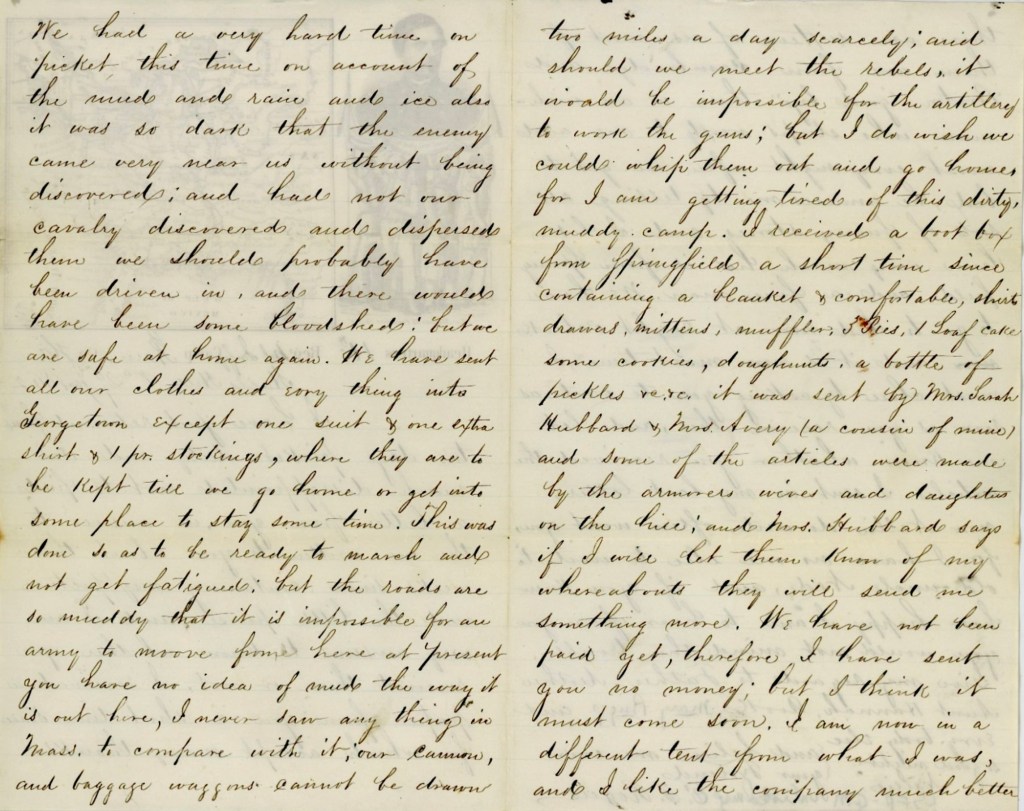 We had a very hard time on
picket, this time on account of
the mud and rain and ice also
it was so dark that the enemy
came very near us without being
discovered; and had not our
cavalry discovered and dispersed
them we should probably have
been driven in, and there would
have been some bloodshed: but we
are safe at home again. We have sent
all our clothes and evry thing into
Georgetown except one suit & one extra
shirt & 1 pr. stockings, where they are to
be kept till we go home or get into
some place to stay some time. This was
done so as to be ready to march and
not get fatigued: but the roads are
so muddy that it is impossible for an
army to moove from here at present
you have no idea of mud the way it
is out here, I never saw any thing in
Mass. to compare with it; our cannon,
and baggage waggons cannot be drawn
two miles a day scarcely; and
should we meet the rebels, it
would be impossible for the artillery
to work the guns; but I do wish we
could whip them out and go home,
for I am getting tired of this dirty,
muddy camp. I received a boot box
from Springfield a short time since
containing a blanket & comfortable, shirts
drawers, mittens, muffler, 3 Pies, 1 Loaf cake
some cookies, doughnuts, a bottle of
pickles &c. &c. it was sent by Mrs. Sarah
Hubbard & Mrs. Avery (a cousin of mine)
and some of the articles were made
by the armorers wives and daughters
on the hill; and Mrs. Hubbard says
if I will let them know of my
whereabouts they will send me
something more. We have not been
paid yet, therefore I have sent
you no money; but I think it
must come soon. I am now in a
different tent from what I was,
and I like the company much better